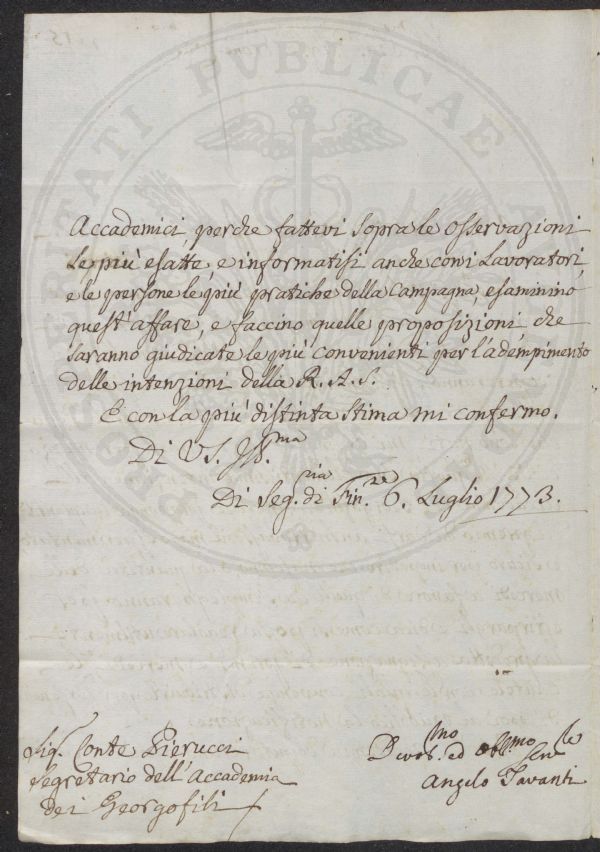 Accademici, perche fattevi sopra le osservazioni
le più esatte, e informatisi anche con i Lavoratori,
e le persone le più pratiche della Campagna, esaminino
quest'affare, e faccino quelle proposizioni, che
saranno giudicate le più convenienti per l'adempimento
delle intenzioni della R. A. S.
E con la più distinta stima mi confermo.
Di VS. Ill.ma
Di Seg.ria di Fin.ze 6. Luglio 1773.
Sig. Conte Pierucci
Segretario dell'Accademia
dei Georgofili
Devot.mo ed Obb.mo Ser.le
Angelo Tavanti
PROSPERITATI PVBLICAE